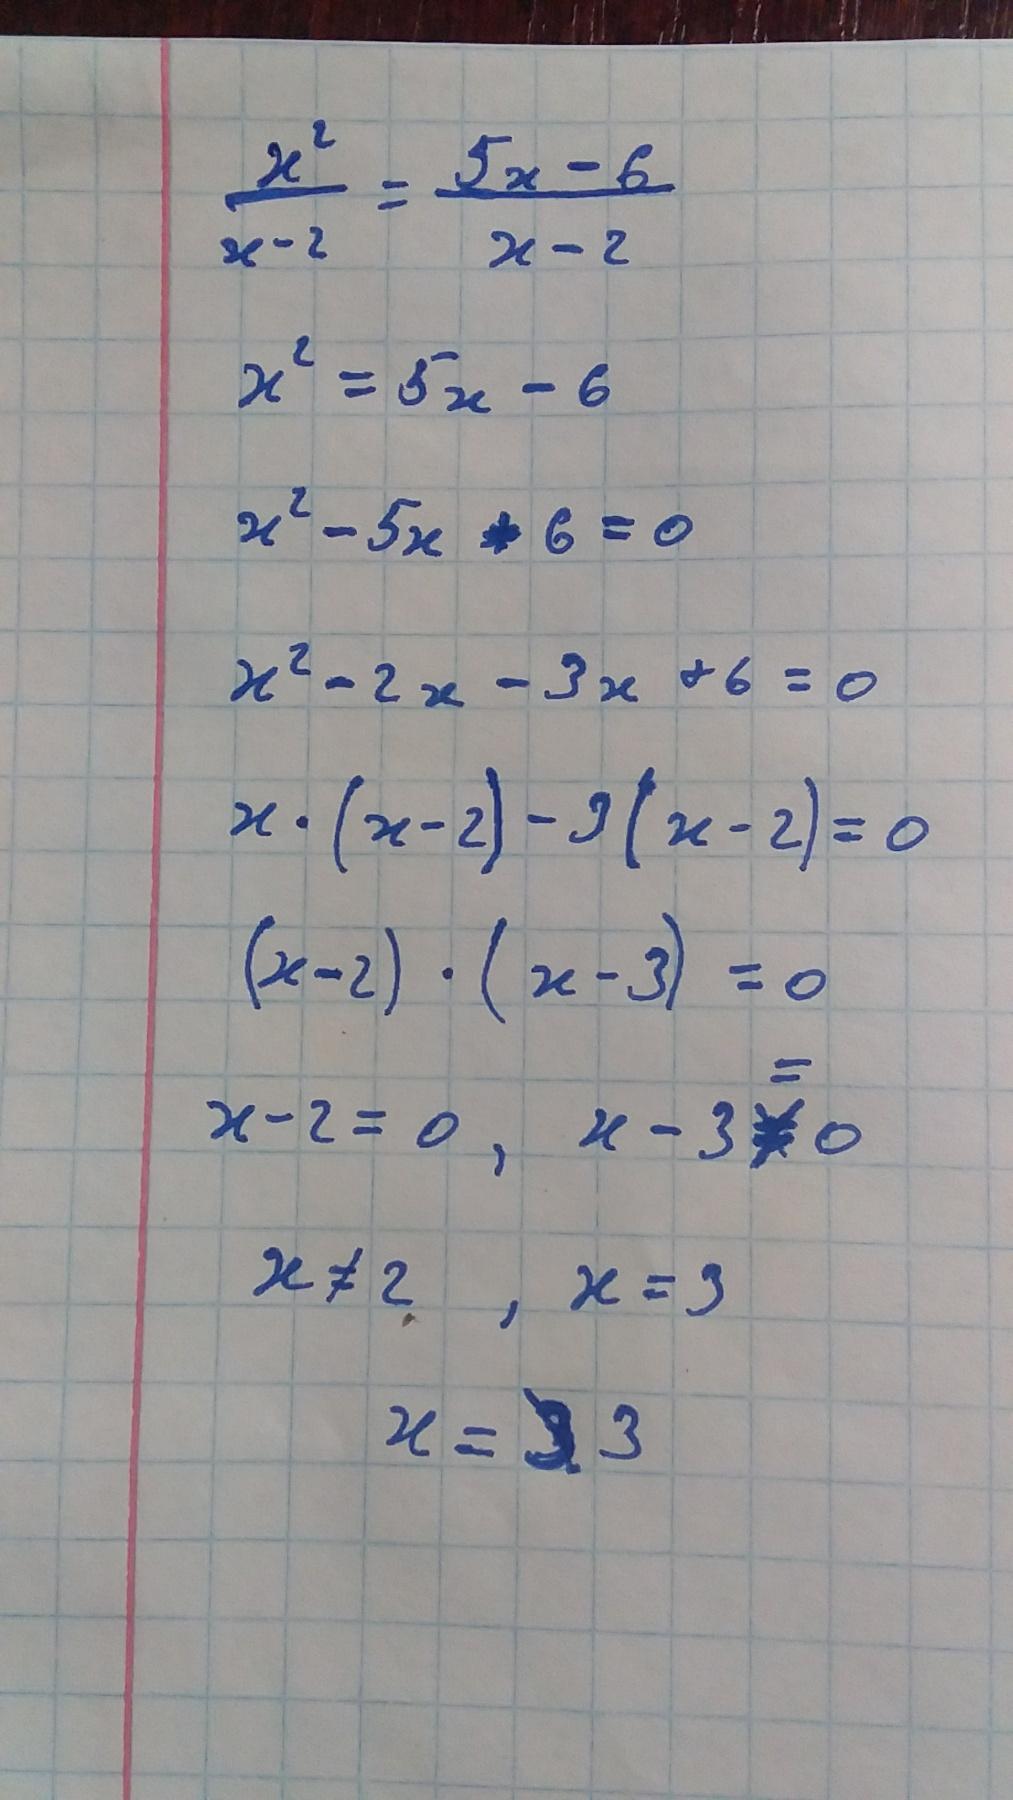 x²/(x-2) = (5x-6)/(x-2)
x² = 5x - 6
x² - 5x + 6 = 0
x² - 2x - 3x + 6 = 0
x · (x-2) - 3(x-2) = 0
(x-2) · (x-3) = 0
x-2 = 0 , x - 3 = 0
x ≠ 2 , x = 3
x = 3